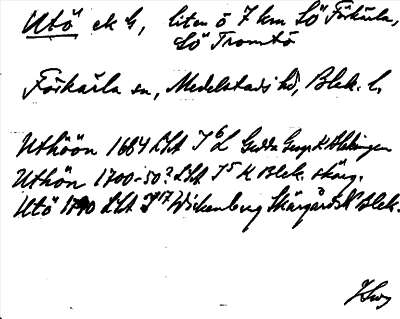 Utö ek bl, liten ö 7 km SÖ Förkärla,
SÖ Tromtö
Förkärla sn, Medelstads hd, Blek. l.
Uthöön 1684 LSA I 6 L Gedda Geogr K Blekingen
Uthön 1700-50? LSA I 5 K Blek. skärg.
Utö 1790 LSA I 17 Wickenberg Skärgårdsk Blek.